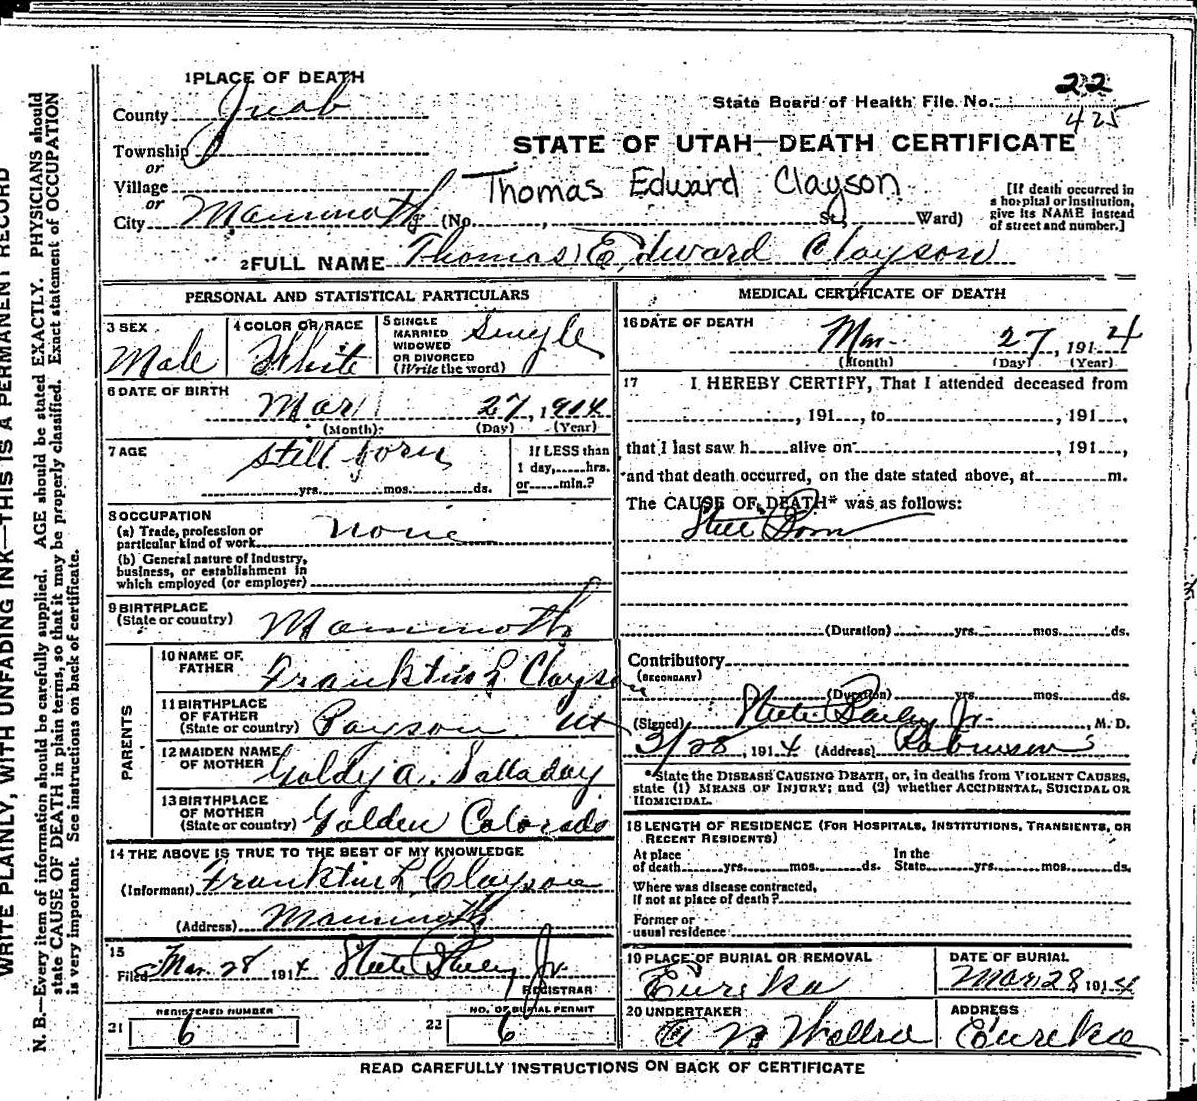 WRITE PLAINLY, WITH UNFADING INK—THIS IS A PERMANENT RECORD
N. B.—Every item of information should be carefully supplied. AGE should be stated EXACTLY. PHYSICIANS should
state CAUSE OF DEATH in plain terms, so that it may be properly classified. Exact statement of OCCUPATION
is very important. See instructions on back of certificate.
1 PLACE OF DEATH
County Juab
Township
or
Village
or
City Mammoth (No. , St., Ward)
22
State Board of Health File No. 425
STATE OF UTAH—DEATH CERTIFICATE
Thomas Edward Clayson
[If death occurred in
a hospital or institution,
give its NAME instead
of street and number.]
2 FULL NAME Thomas Edward Clayson
PERSONAL AND STATISTICAL PARTICULARS
3 SEX
Male
4 COLOR OR RACE
White
5 SINGLE
MARRIED
WIDOWED
OR DIVORCED
(Write the word)
Single
6 DATE OF BIRTH
Mar 27, 1914
(Month) (Day) (Year)
7 AGE
still born
yrs. mos. ds.
If LESS than
1 day, hrs.
or min.?
8 OCCUPATION
(a) Trade, profession or
particular kind of work none
(b) General nature of industry,
business, or establishment in
which employed (or employer)
9 BIRTHPLACE
(State or country) Mammoth
PARENTS
10 NAME OF
FATHER Franklin L Clayson
11 BIRTHPLACE
OF FATHER
(State or country) Payson Ut
12 MAIDEN NAME
OF MOTHER Goldy A. Salladay
13 BIRTHPLACE
OF MOTHER
(State or country) Golden Colorado
14 THE ABOVE IS TRUE TO THE BEST OF MY KNOWLEDGE
(Informant) Franklin L Clayson
(Address) Mammoth
15
Filed Mar. 28 1914 Steele Bailey Jr.
REGISTRAR
REGISTERED NUMBER
21 6
NO. OF BURIAL PERMIT
22 6
MEDICAL CERTIFICATE OF DEATH
16 DATE OF DEATH
Mar. 27, 1914
(Month) (Day) (Year)
17 I HEREBY CERTIFY, That I attended deceased from
, 191 , to , 191 ,
that I last saw h alive on , 191 ,
and that death occurred, on the date stated above, at m.
The CAUSE OF DEATH* was as follows:
Still Born
(Duration) yrs. mos. ds.
Contributory
(SECONDARY)
(Duration) yrs. mos. ds.
(Signed) Steele Bailey Jr. , M. D.
3/28, 1914 (Address) Robinson
*State the DISEASE CAUSING DEATH, or, in deaths from VIOLENT CAUSES,
state (1) MEANS OF INJURY; and (2) whether ACCIDENTAL, SUICIDAL OR
HOMICIDAL.
18 LENGTH OF RESIDENCE (FOR HOSPITALS, INSTITUTIONS, TRANSIENTS, OR
RECENT RESIDENTS)
At place
of death yrs. mos. ds.
In the
State yrs. mos. ds.
Where was disease contracted,
if not at place of death?
Former or
usual residence
19 PLACE OF BURIAL OR REMOVAL
Eureka
DATE OF BURIAL
Mar. 28 1914
20 UNDERTAKER
ADDRESS
Eureka
READ CAREFULLY INSTRUCTIONS ON BACK OF CERTIFICATE